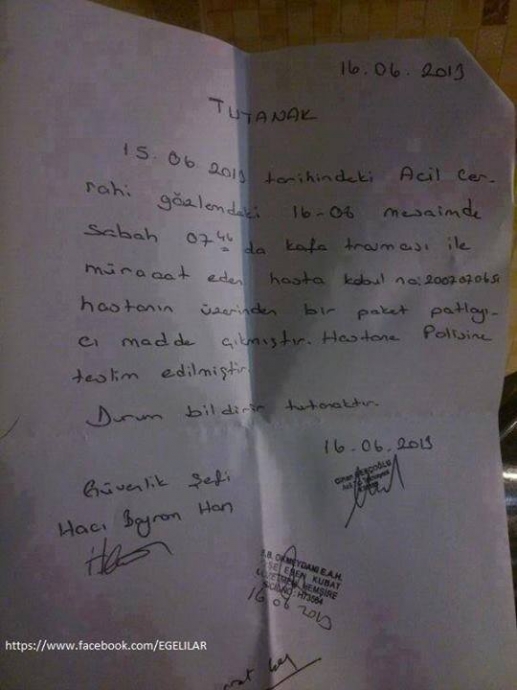 16.06.2013
TUTANAK
15.06.2013 tarihindeki Acil Cer-
rahi gözlemdeki 16-08 mesaimde
sabah 07 46 da kafa travması ile
müracaat eden hasta kabul no:
hastanın üzerinden bir paket patlayı-
cı madde çıkmıştır. Hastane Polisine
teslim edilmiştir.
Durum bildirir tutanaktır.
16.06.2013
Güvenlik Şefi
Hacı Bayram Han
S.B. OKMEYDANI E.A.H.
EREN KUBAT
HEMŞİRE
16 06 2013
https://www.facebook.com/EGELILAR